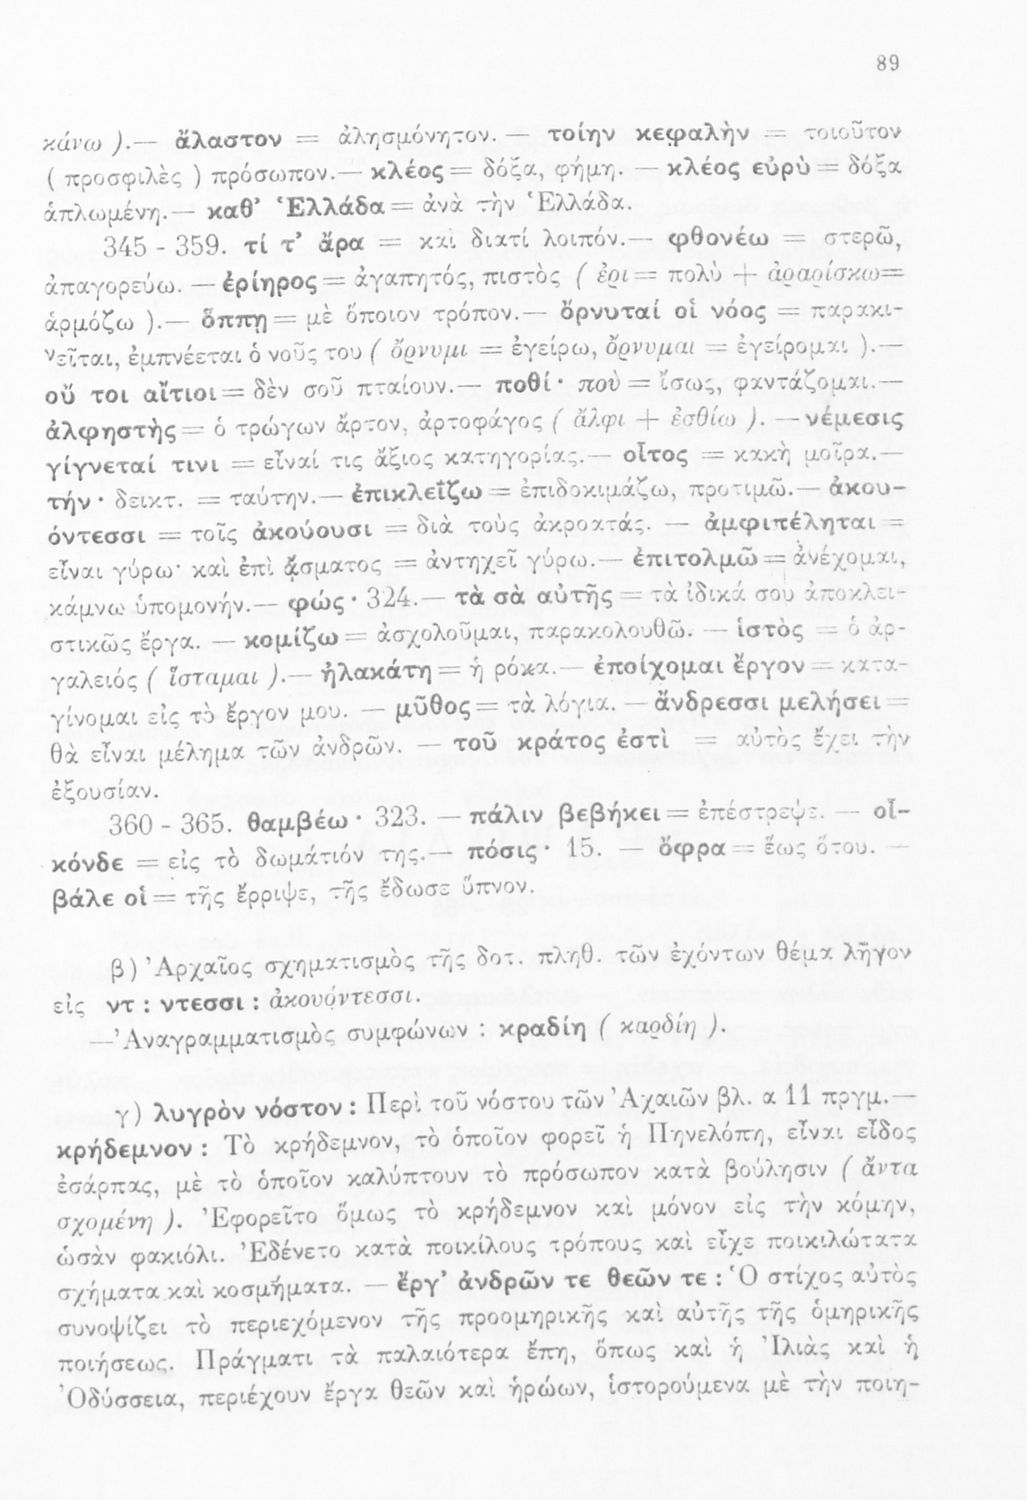 89
κάνω ).— ἄλαστον = ἀλησμόνητον. — τοίην κεφαλὴν = τοιοῦτον
( προσφιλὲς ) πρόσωπον.— κλέος = δόξα, φήμη. — κλέος εὐρὺ = δόξα
ἁπλωμένη.— καθ’ Ἑλλάδα = ἀνὰ τὴν Ἑλλάδα.
345 - 359. τί τ’ ἄρα = καὶ διατί λοιπόν.— φθονέω = στερῶ,
ἀπαγορεύω. — ἐρίηρος = ἀγαπητός, πιστὸς ( ἐρι = πολὺ + ἀραρίσκω =
ἁρμόζω ).— ὅππῃ = μὲ ὅποιον τρόπον.— ὄρνυταί οἱ νόος = παρακι-
νεῖται, ἐμπνέεται ὁ νοῦς του ( ὄρνυμι = ἐγείρω, ὄρνυμαι = ἐγείρομαι ).—
οὔ τοι αἴτιοι = δὲν σοῦ πταίουν.— ποθί · ποὺ = ἴσως, φαντάζομαι.—
ἀλφηστὴς = ὁ τρώγων ἄρτον, ἀρτοφάγος ( ἄλφι + ἐσθίω ). — νέμεσις
γίγνεταί τινι = εἶναί τις ἄξιος κατηγορίας.— οἶτος = κακὴ μοῖρα.—
τήν · δεικτ. = ταύτην.— ἐπικλεΐζω = ἐπιδοκιμάζω, προτιμῶ.— ἀκου-
όντεσσι = τοῖς ἀκούουσι = διὰ τοὺς ἀκροατάς. — ἀμφιπέληται =
εἶναι γύρω· καὶ ἐπὶ ᾄσματος = ἀντηχεῖ γύρω.— ἐπιτολμῶ = ἀνέχομαι,
κάμνω ὑπομονήν.— φώς · 324.— τὰ σὰ αὐτῆς = τὰ ἰδικά σου ἀποκλει-
στικῶς ἔργα. — κομίζω = ἀσχολοῦμαι, παρακολουθῶ. — ἱστὸς = ὁ ἀρ-
γαλειός ( ἵσταμαι ).— ἠλακάτη = ἡ ρόκα.— ἐποίχομαι ἔργον = κατα-
γίνομαι εἰς τὸ ἔργον μου. — μῦθος = τὰ λόγια. — ἄνδρεσσι μελήσει =
θὰ εἶναι μέλημα τῶν ἀνδρῶν. — τοῦ κράτος ἐστὶ = αὐτὸς ἔχει τὴν
ἐξουσίαν.
360 - 365. θαμβέω · 323. — πάλιν βεβήκει = ἐπέστρεψε. — οἶ-
κόνδε = εἰς τὸ δωμάτιόν της.— πόσις · 15. — ὄφρα = ἕως ὅτου. —
βάλε οἱ = τῆς ἔρριψε, τῆς ἔδωσε ὕπνον.
β) Ἀρχαῖος σχηματισμὸς τῆς δοτ. πληθ. τῶν ἐχόντων θέμα λῆγον
εἰς ντ : ντεσσι : ἀκουόντεσσι.
—Ἀναγραμματισμὸς συμφώνων : κραδίη ( καρδίη ).
γ) λυγρὸν νόστον : Περὶ τοῦ νόστου τῶν Ἀχαιῶν βλ. α 11 πργμ.—
κρήδεμνον : Τὸ κρήδεμνον, τὸ ὁποῖον φορεῖ ἡ Πηνελόπη, εἶναι εἶδος
ἐσάρπας, μὲ τὸ ὁποῖον καλύπτουν τὸ πρόσωπον κατὰ βούλησιν ( ἄντα
σχομένη ). Ἐφορεῖτο ὅμως τὸ κρήδεμνον καὶ μόνον εἰς τὴν κόμην,
ὡσὰν φακιόλι. Ἐδένετο κατὰ ποικίλους τρόπους καὶ εἶχε ποικιλώτατα
σχήματα καὶ κοσμήματα. — ἔργ’ ἀνδρῶν τε θεῶν τε : Ὁ στίχος αὐτὸς
συνοψίζει τὸ περιεχόμενον τῆς προομηρικῆς καὶ αὐτῆς τῆς ὁμηρικῆς
ποιήσεως. Πράγματι τὰ παλαιότερα ἔπη, ὅπως καὶ ἡ Ἰλιὰς καὶ ἡ
Ὀδύσσεια, περιέχουν ἔργα θεῶν καὶ ἡρώων, ἱστορούμενα μὲ τὴν ποιη-